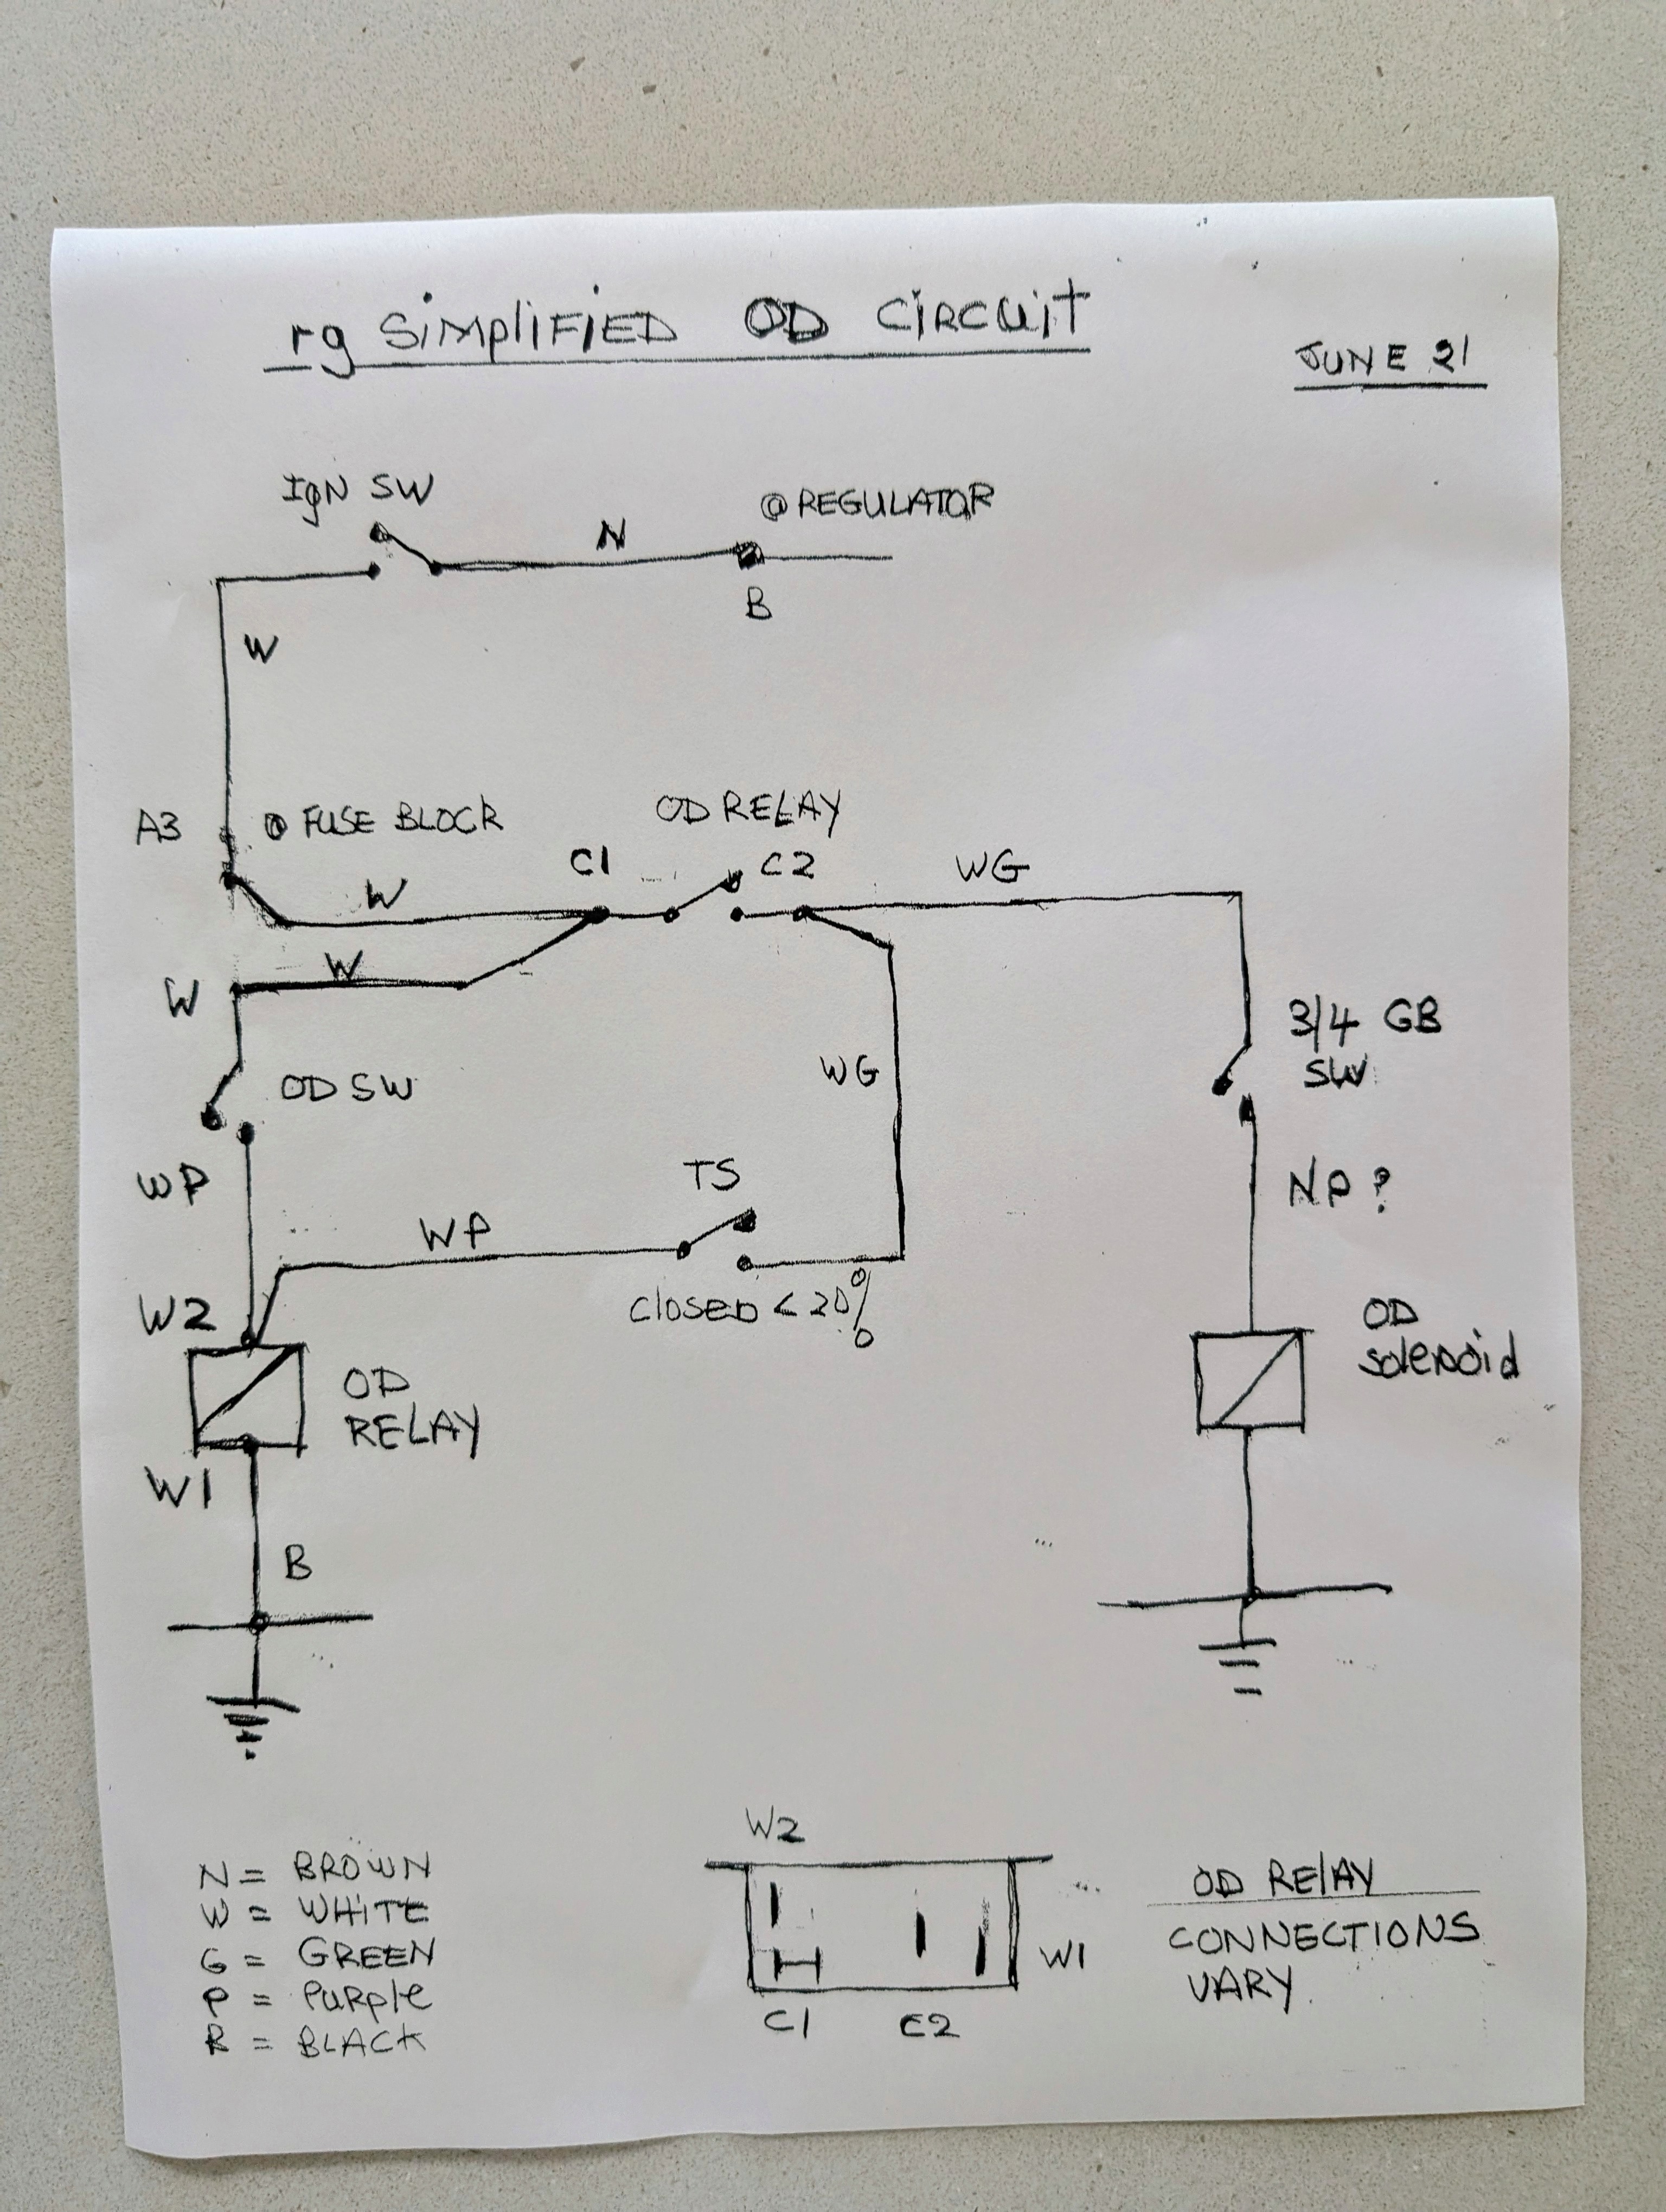 rg SIMPLIFIED OD CIRCUIT
JUNE 21
IGN SW
@ REGULATOR
N
B
W
A3
@ FUSE BLOCK
OD RELAY
C1
C2
WG
W
W
W
3/4 GB
SW
OD SW
WG
WP
TS
NP?
WP
CLOSED < 20%
W2
OD
RELAY
OD
Solenoid
W1
B
N = BROWN
W = WHITE
G = GREEN
P = PURPle
B = BLACK
W2
W1
C1
C2
OD RELAY
CONNECTIONS
VARY.